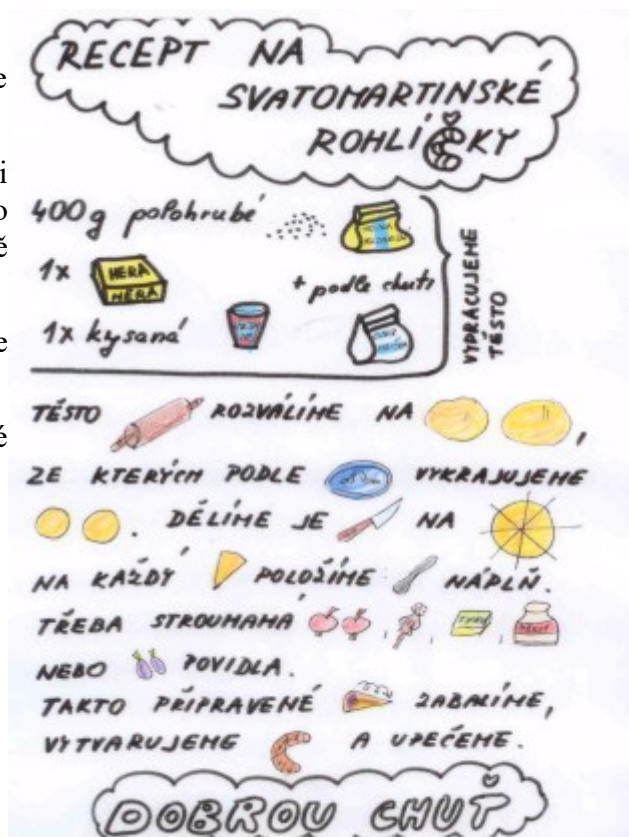 RECEPT NA
SVATOMARTINSKÉ
ROHLÍČKY
e
i
o
ě
e
é
400g polohrubé
1x HERA
HERA
+ podle chuti
1x kysaná
VYPRACUJEME
TĚSTO
TĚSTO ROZVÁLÍME NA ,
ZE KTERÝCH PODLE VYKRAJUJEME
. DĚLÍME JE NA
NA KAŽDÝ POLOŽÍME NÁPLŇ.
TŘEBA STROUHANÁ , , ,
NEBO POVIDLA.
TAKTO PŘIPRAVENÉ ZABALÍME,
VYTVARUJEME A UPEČEME.
DOBROU CHUŤ